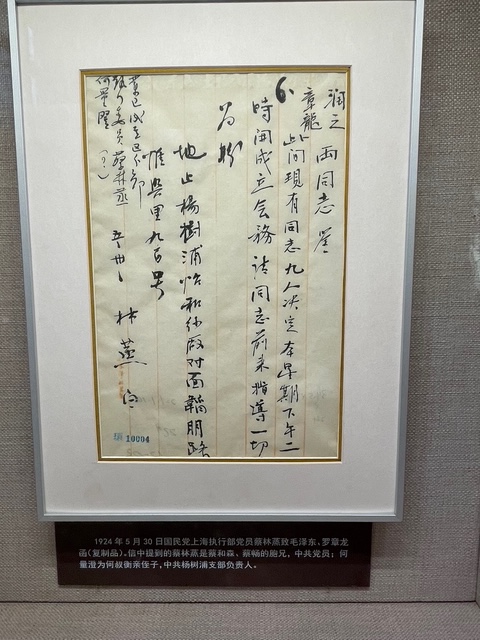 润之
章龍 两同志鉴
此间现有同志九人决定本星期下午二
時开成立会务请同志前来指導一切
为盼
地止楊樹浦怡和纱厰对面韜朋路
惟興里九百号
林蒸
五 卅
執行委员蔡林蒸
何量澄 (?)
10004
1924年5月30日国民党上海执行部党员蔡林蒸致毛泽东、罗章龙
函(复制品)。信中提到的蔡林蒸是蔡和森、蔡畅的胞兄,中共党员;何
量澄为何叔衡亲侄子,中共杨树浦支部负责人。